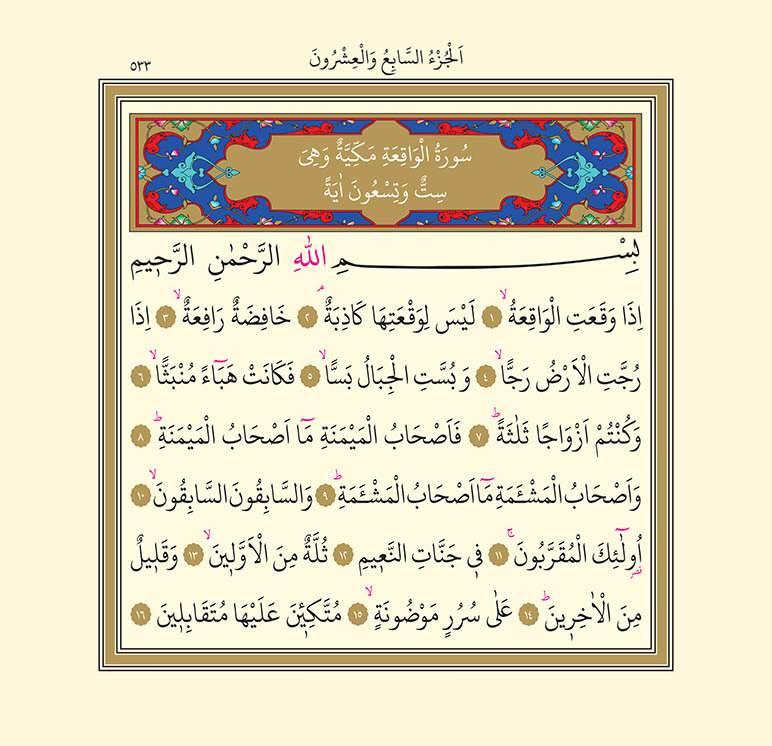 اَلْجُزْءُ السَّابِعُ وَالْعِشْرُونَ
٥٣٣
سُورَةُ الْوَاقِعَةِ مَكِّيَّةٌ وَهِىَ
سِتٌّ وَتِسْعُونَ اٰيَةً
بِسْمِ اللّٰهِ الرَّحْمٰنِ الرَّحٖيمِ
اِذَا وَقَعَتِ الْوَاقِعَةُۙ ١ لَيْسَ لِوَقْعَتِهَا كَاذِبَةٌۢ ٢ خَافِضَةٌ رَافِعَةٌۙ ٣ اِذَا
رُجَّتِ الْاَرْضُ رَجًّاۙ ٤ وَبُسَّتِ الْجِبَالُ بَسًّاۙ ٥ فَكَانَتْ هَبَٓاءً مُنْبَثًّاۙ ٦
وَكُنْتُمْ اَزْوَاجًا ثَلٰثَةًؕ ٧ فَاَصْحَابُ الْمَيْمَنَةِ مَٓا اَصْحَابُ الْمَيْمَنَةِؕ ٨
وَاَصْحَابُ الْمَشْـَٔمَةِ مَٓا اَصْحَابُ الْمَشْـَٔمَةِؕ ٩ وَالسَّابِقُونَ السَّابِقُونَۙ ١٠
اُو۬لٰٓئِكَ الْمُقَرَّبُونَۚ ١١ فٖى جَنَّاتِ النَّعٖيمِ ١٢ ثُلَّةٌ مِنَ الْاَوَّلٖينَۙ ١٣ وَقَلٖيلٌ
مِنَ الْاٰخِرٖينَؕ ١٤ عَلٰى سُرُرٍ مَوْضُونَةٍۙ ١٥ مُتَّكِـٖٔينَ عَلَيْهَا مُتَقَابِلٖينَ ١٦